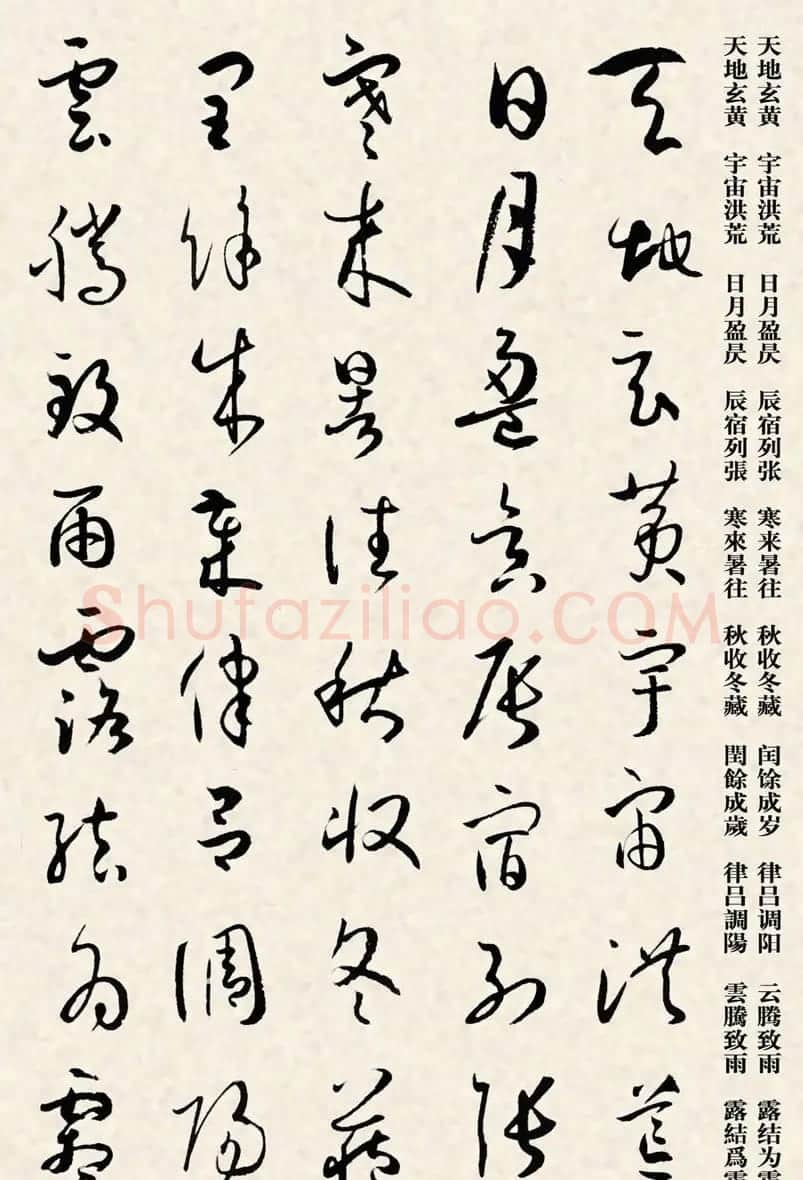 天地玄黄 宇宙洪荒 日月盈昃 辰宿列张 寒来暑往 秋收冬藏 闰馀成岁 律吕调阳 云腾致雨 露结为
天地玄黄 宇宙洪荒 日月盈昃 辰宿列張 寒來暑往 秋收冬藏 閏餘成歲 律吕調陽 雲騰致雨 露結爲
天地玄黄宇宙洪荒
日月盈昃辰宿列張
寒来暑往秋收冬藏
閏餘成歲律吕調陽
雲騰致雨露結為霜
Shufaziliao.COM